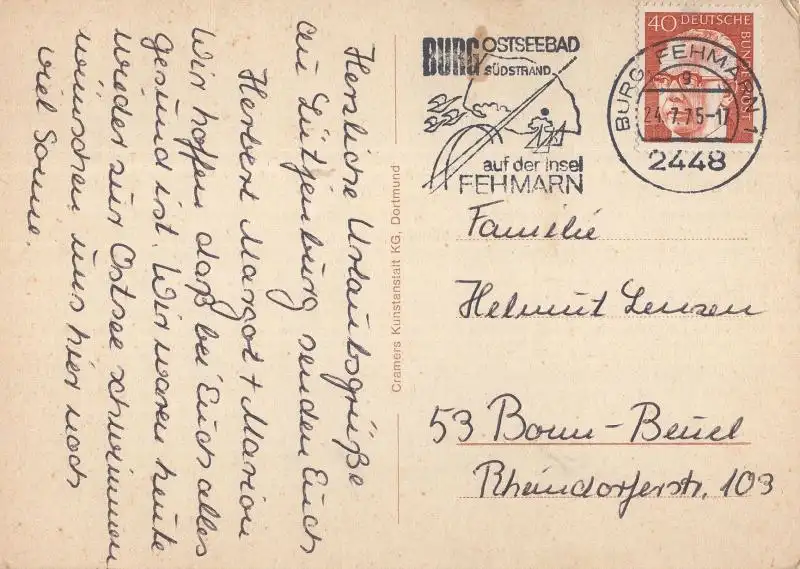 Herzliche Urlaubsgrüße
aus Lütjenburg senden Euch
Herbert Margot + Marion
Wir hoffen daß bei Euch alles
gesund ist. Wir waren heute
wieder zur Ostsee schwimmen
wünschen uns hier noch
viel Sonne.
Cramers Kunstanstalt KG, Dortmund
BURG OSTSEEBAD
SÜDSTRAND
auf der Insel
FEHMARN
40 DEUTSCHE
BUNDESPOST
BURG, FEHMARN 1
g
24.7.75-17
2448
Familie
Helmut Lensen
53 Bonn-Beuel
Rheindorferstr. 103